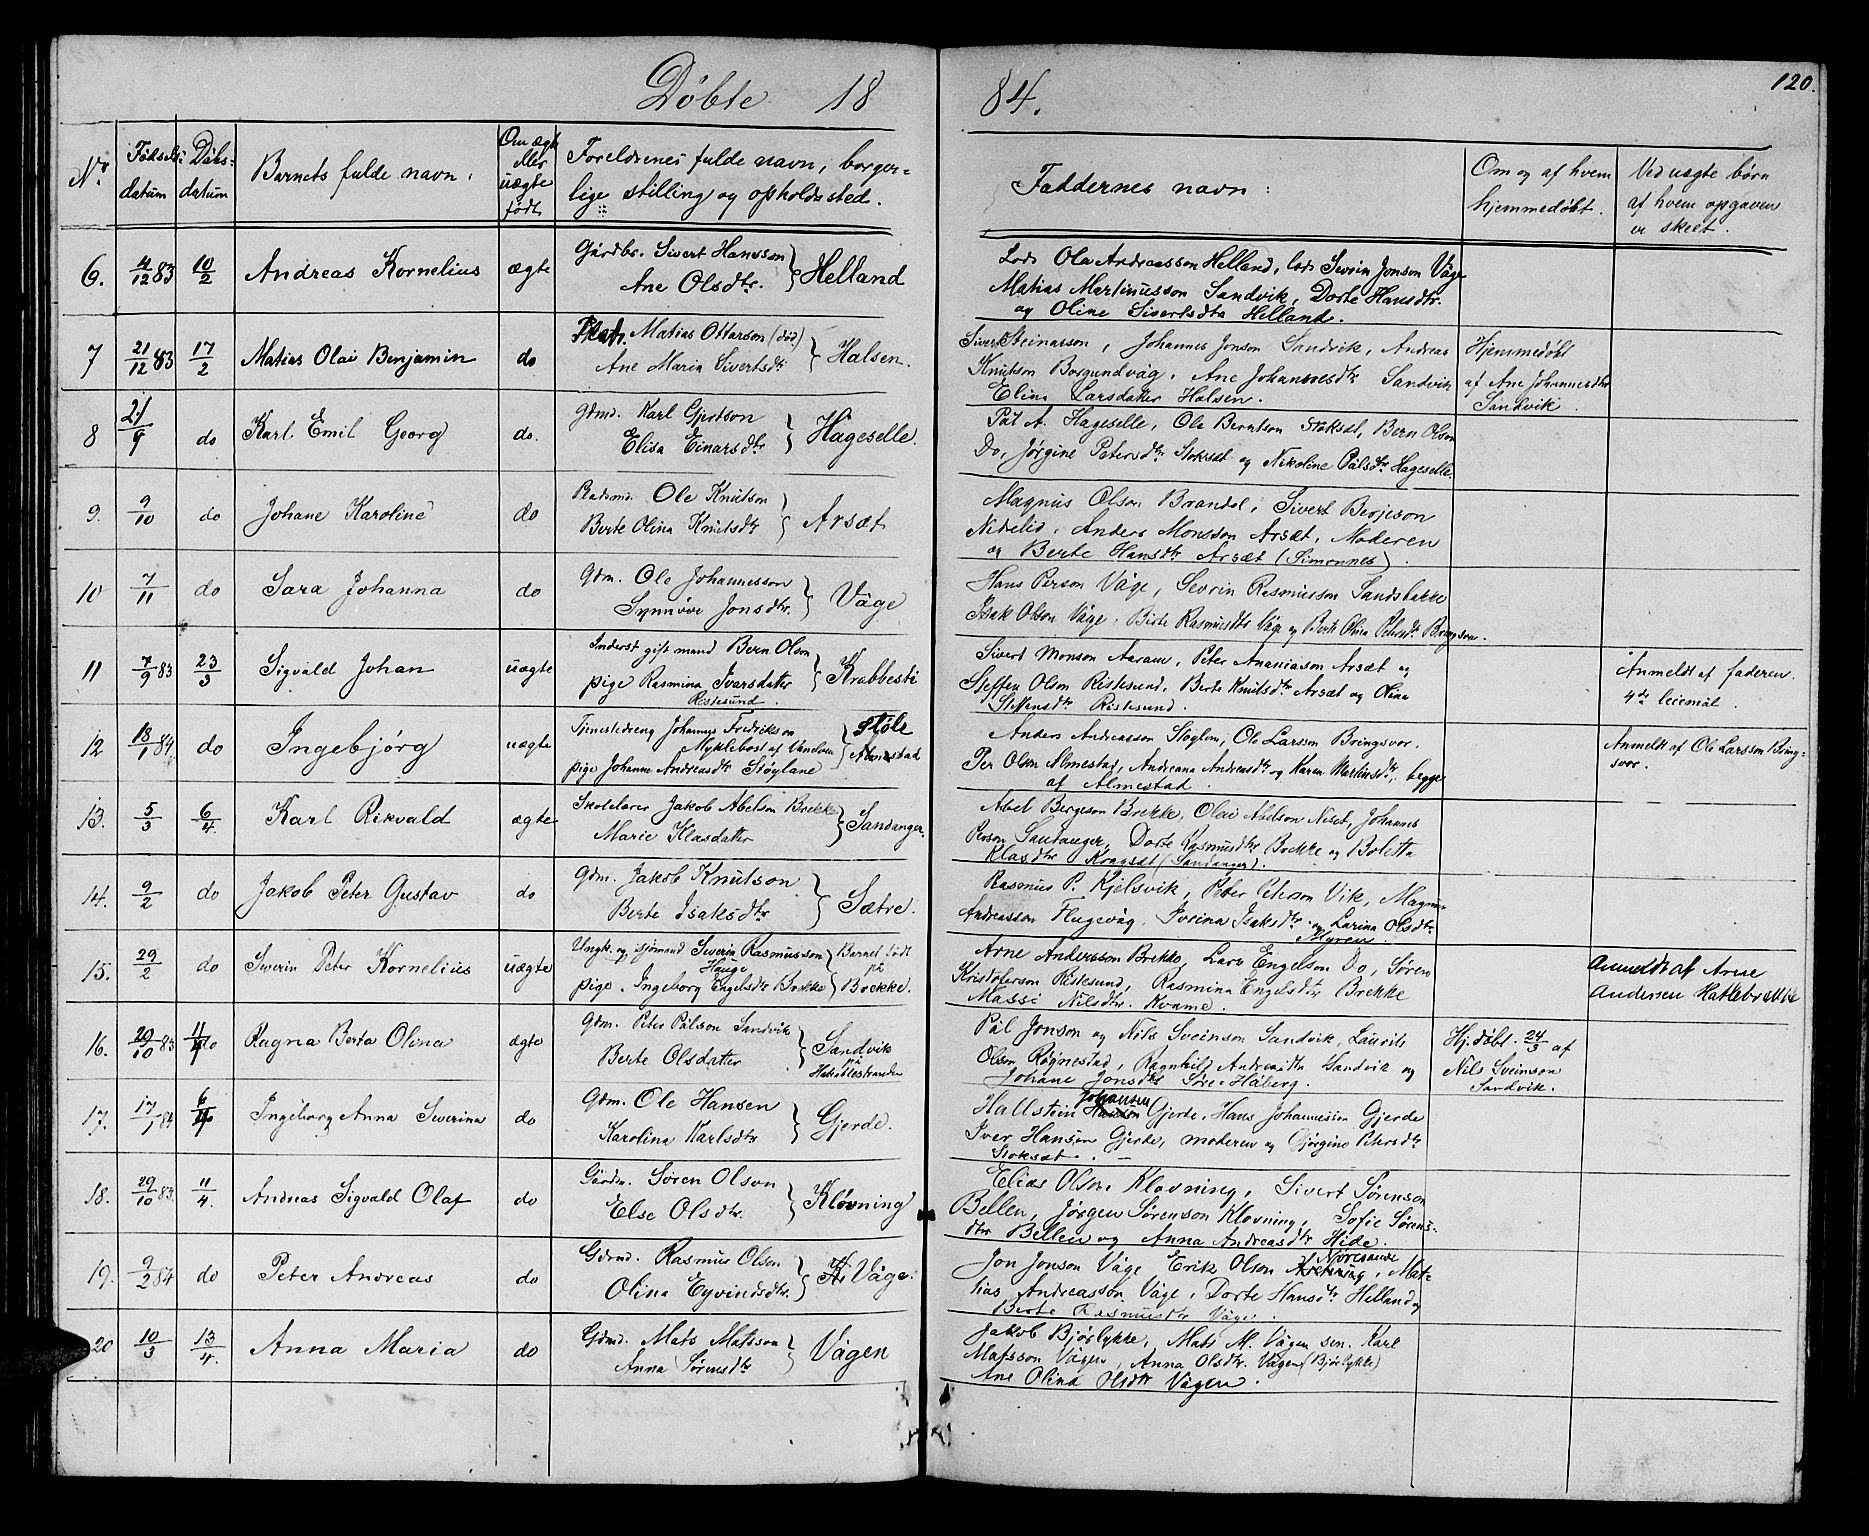 Døbte 18 84.
120.
No
Fødsels datum
Døbs- datum
Barnets fulde navn.
Om ægte eller uægte født
Foreldrenes fulde navn, borger-
lige stilling og opholdssted.
Faddernes navn:
Om og af hvem
hjemmedøbt.
Ved uægte børn
af hvem opgaven
er skeet.
6. 4/12 83 10/2 Andreas Kornelius ægte
Gårdbr. Sivert Hansson
Ane Olsdtr. } Helland
Lods Ola Andreasson Helland, lods Severin Jonson Våge
Matias Martinusson Sandvik, Dorte Hansdtr.
og Oline Sivertsdtr Helland.
7 21/12 83 17/2 Matias Olai Benjamin do
Matias Ottarson (død)
Ane Maria Sivertsdtr } Halsen.
Sivert Steinarson, Johannes Jonson Sandvik, Andreas
Knutson Borgundvåg, Ane Johannesdtr Sandvik
Elina Larsdatter Halsen.
Hjemmedøbt
af Ane Johannesdtr
Sandvik.
8 21/9 do Karl Emil Georg do.
Gdmd. Karl Gjertson
Elisa Einarsdtr } Hageselle.
Pål A. Hageselle, Ole Berntson Stoksæt, Bern Olson
Do, Jørgine Petersdtr Stoksæt og Nikoline Pålsdtr Hageselle.
9. 9/10 do Johane Karoline do
Pladsmd. Ole Knutson
Berte Olina Knutsdtr } Arsæt
Magnus Olson Brandal, Sivert Berjeson
Nedelid, Anders Monsson Arsæt, Moderen
og Berte Hansdtr Arsæt (Simonnes).
10 7/11 do Sara Johanna do
Gdm. Ole Johannesson
Synnøve Jonsdtr. } Våge
Hans Person Våge, Severin Rasmusson Sandsbakke
Isak Olson Våge, Berte Rasmusdtr Våge og Berte Olina Petersdtr Bringsvor.
11 7/9 83 23/3 Sigvald Johan uægte
Inderst gift mand Bern Olson
pige Rasmina Ivarsdatter
Ristesund. } Krabbesti
Sivert Monson Aaram, Peter Ananiasson Arsæt og
Steffen Olson Ristesund, Berte Knutsdtr Arsæt og Olina
Steffensdtr Ristesund.
Anmeldt af faderen.
4de leiemål.
12 18/1 84 do Ingebjørg uægte
Tjenestedreng Johannes Fredrikson
Myklebost af Vanelven
pige Johanne Andreasdtr Støylane } Støle
Almestad
Anders Andreasson Støylen, Ole Larsson Bringsvor.
Per Olson Almestad, Andreana Andreasdtr og Karen Martinsdtr, begge
af Almestad.
Anmeldt af Ole Larsson Bring-
svor.
13. 5/3 6/4. Karl Rikvald ægte
Skolelærer Jakob Abelson Brekke
Marie Klasdatter } Sandanger.
Abel Bergeson Brekke, Olai Abelson Niset, Johannes
Person Sandanger, Dorte Rasmusdtr Brekke og Boletta
Klasdtr Kragsæt (Sandanger).
14. 9/2 do Jakob Peter Gustav do
Gdm. Jakob Knutson
Berte Isaksdtr } Sætre.
Rasmus P. Kjelsvik, Peter Peterson Vik, Magnus
Andreasson Flugevåg, Ivrina Isaksdtr og Larina Olsdtr
Myren.
15. 29/2 do Severin Peter Kornelius uægte
Ungk. og sjømand Severin Rasmusson
Hauge
pige. Ingeborg Engelsdtr Brekke } Barnet født
på
Brekke.
Arne Andersson Brekke, Lars Engelson Do, Søren
Kristoferson Ristesund, Rasmina Engelsdtr Brekke
Massi Nilsdtr. Kvame.
Anmeldt af Arne
Andersen Hatlebrække
16. 29/10 83 11/4 Ragna Berta Olina ægte
Gdm. Peter Pålson Sandvik
Berte Olsdatter } Sandvik
på
Hatlestranden
Pål Jonson og Nils Sveinson Sandvik, Laurits
Olson Røgnestad, Ragnhild Andreasdtr Sandvik og
Johane Jonsdtr Søre Håberg.
Hj. døbt. 24/3 af
Nils Sveinson
Sandvik.
17. 17/1 84 6/4 Ingeborg Anna Severina do
Gdm. Ole Hansen
Karolina Karlsdtr } Gjerde.
Johansen
Hallstein Hanson Gjerde, Hans Johannessen Gjerde
Iver Hanson Gjerde, moderen og Gjørgine Petersdtr
Stoksæt.
18. 29/10 83. 11/4. Andreas Sigvald Olaf do
Gårdm. Søren Olson
Else Olsdtr. } Kløvning
Elias Olson Kløvning, Sivert Sørenson
Bellen, Jørgen Sørenson Kløvning, Sofie Sørens-
dtr Bellen og Anna Andreasdtr Hide.
19. 9/2 84 do Peter Andreas do
Gdmd. Rasmus Olson
Olina Eyvindsdtr. } Våge.
Jon Jonson Våge Erik Olson Nøresande, Mat-
tias Andreasson Våge, Dorte Hansdtr Helland og
Berte Rasmusdtr Våge.
20 10/3 13/4. Anna Maria do
Gdmd. Mats Matsson
Anna Sørensdtr } Vågen
Jakob Bjørlykke, Mats M. Vågen sen. Karl
Matsson Vågen, Anna Olsdtr. Vågen (Bjørlykke)
Ane Olina Olsdtr Vågen.